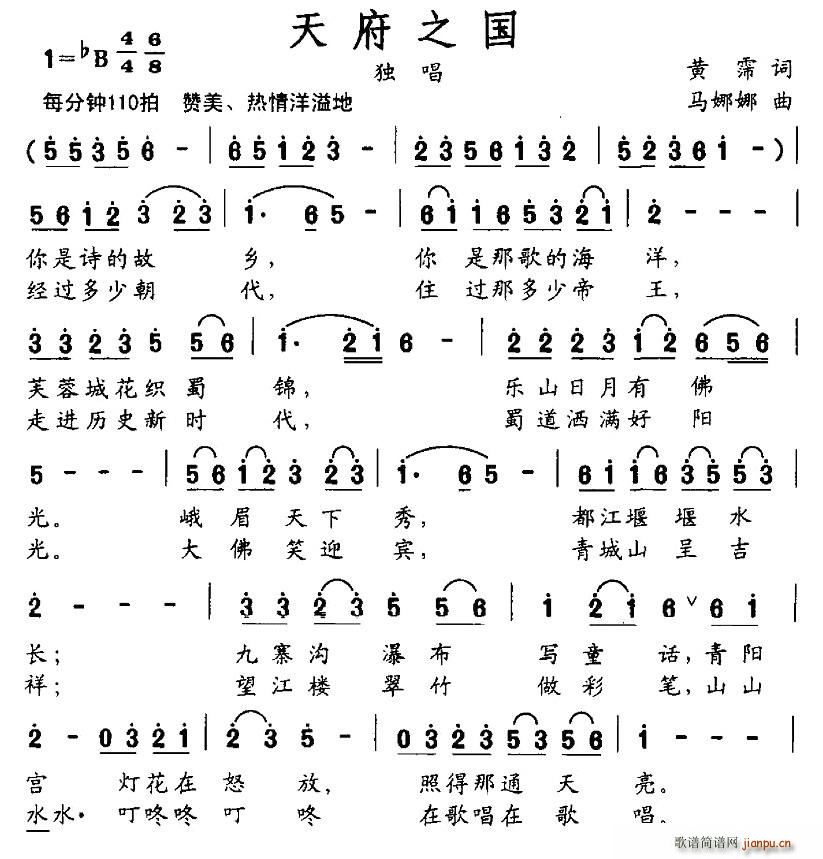 天府之国
1=♭B 4/4 6/8
独唱
黄霈 词
每分钟110拍 赞美、热情洋溢地
马娜娜 曲
(5 5 3 5 6 - | 6 5 1 2 3 - | 2 3 5 6 1 3 2 | 5 2 3 6 1 - ) |
5 6 1 2 3 2 3 | 1· 6 5 - | 6 1 1 6 5 3 2 1 | 2 - - |
你是诗的故 乡, 你 是那歌的海 洋,
经过多少朝 代, 住 过那多少帝 王,
3 3 2 3 5 5 6 | 1· 2 1 6 - | 2 2 2 3 1 2 6 5 6 |
芙蓉城花织 蜀 锦, 乐山日月有 佛
走进历史新 时 代, 蜀道洒满好 阳
5 - - - | 5 6 1 2 3 2 3 | 1· 6 5 - | 6 1 1 6 3 5 5 3 |
光。 峨眉 天 下 秀, 都江堰 堰 水
光。 大佛 笑 迎 宾, 青城山 呈 吉
2 - - - | 3 3 2 3 5 5 6 | 1 2 1 6 ∨ 6 1 |
长; 九寨沟 瀑 布 写 童 话,青阳
祥; 望江楼 翠 竹 做 彩 笔,山山
2 - 0 3 2 1 | 2 3 5 - | 0 3 2 3 5 3 5 6 | 1 - - - |
宫 灯花在 怒 放, 照得那通 天 亮。
水水· 叮咚咚 叮 咚 在歌唱在 歌 唱。
歌谱简谱网 jianpu.cn